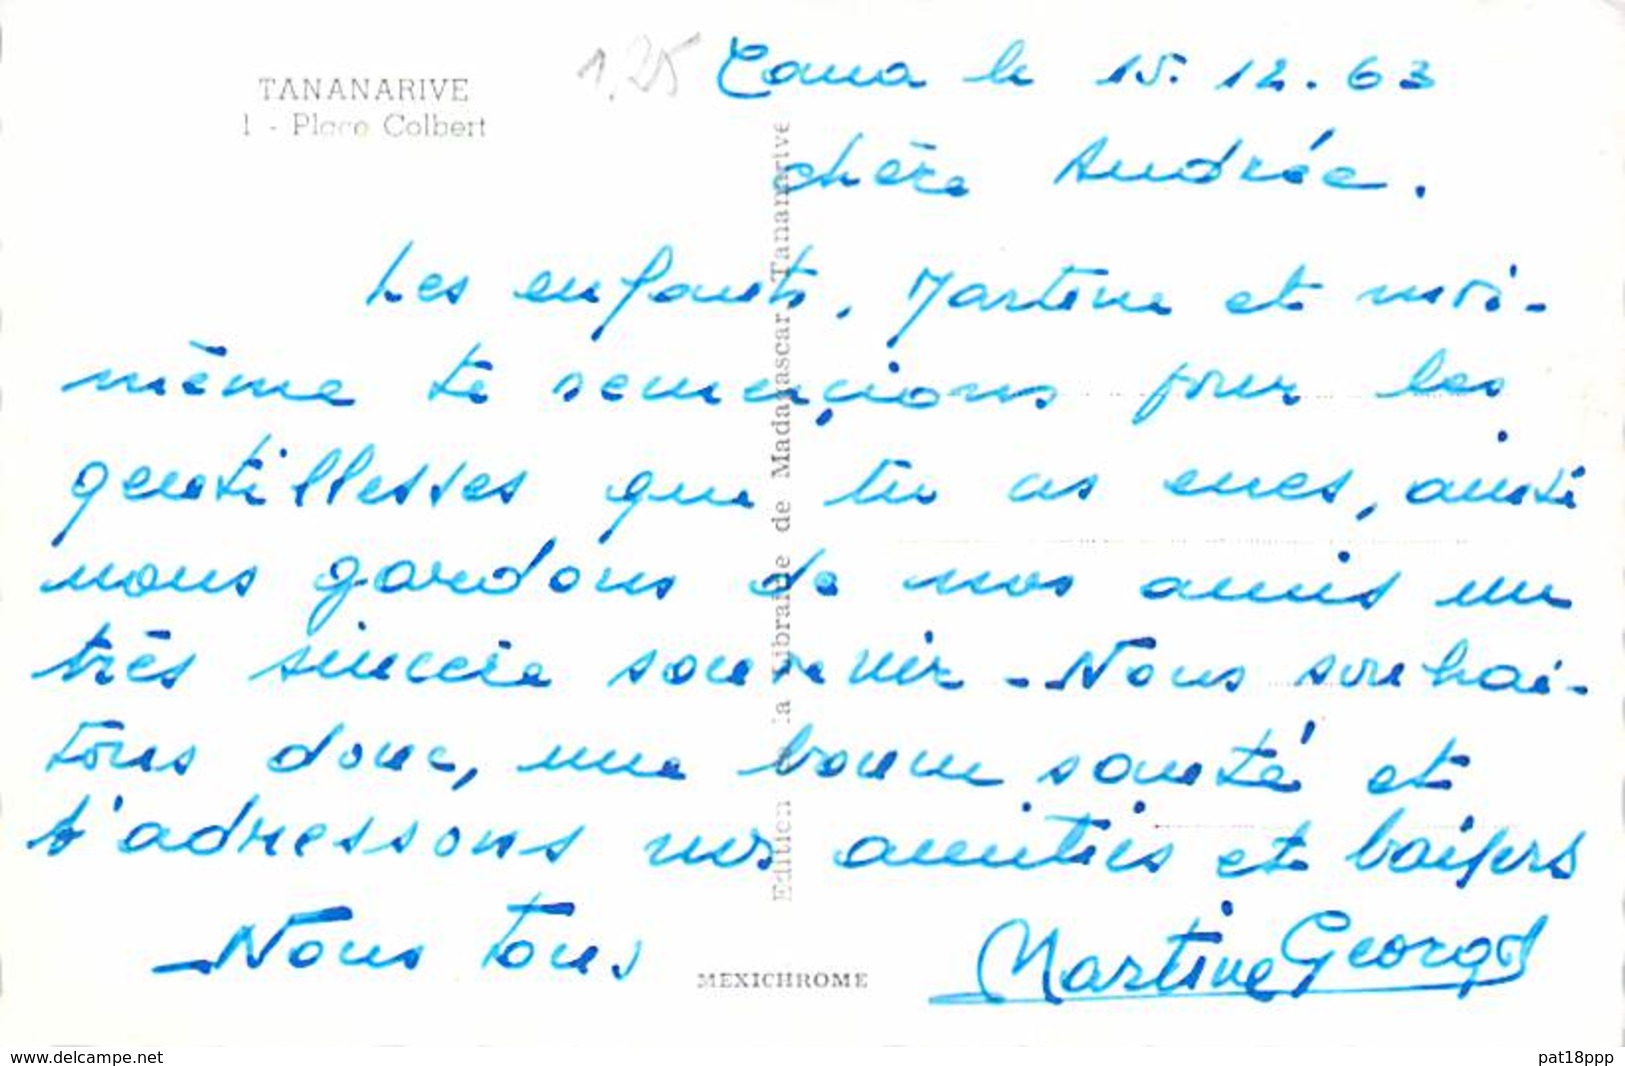 TANANARIVE
1 - Place Colbert
1,25
Tana le 15.12.63
chère Andrée.
Les enfants, Martine et moi-
même te remerçions pour les
gentillesses que tu as eues, aussi
nous gardons de nos amis un
très sincère souvenir - Nous souhai-
tons donc, une bonne santé et
t'adressons nos amitiés et baisers
Nous tous
Martine Georges
Edition de la Librairie de Madagascar Tananarive
MEXICHROME
www.delcampe.net
pat18ppp